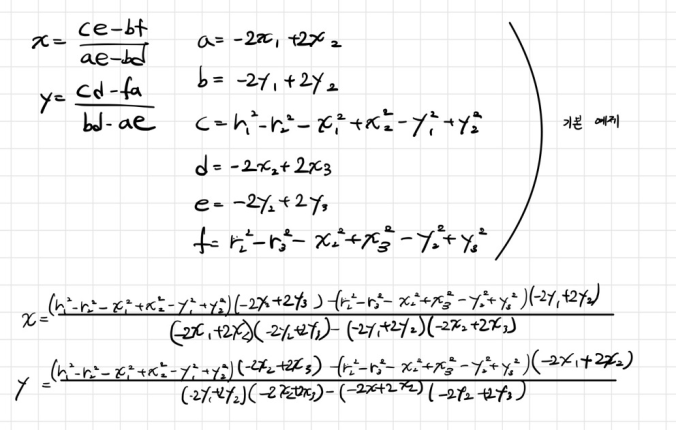 x = (ce-bf)/(ae-bd)
a = -2x₁ + 2x₂
y = (cd-fa)/(bd-ae)
b = -2y₁ + 2y₂
c = r₁²-r₂²-x₁²+x₂²-y₁²+y₂²
기본 예제
d = -2x₂+2x₃
e = -2y₂+2y₃
f = r₂²-r₃²-x₂²+x₃²-y₂²+y₃²
x = ((r₁²-r₂²-x₁²+x₂²-y₁²+y₂²)(-2y₂+2y₃)-(r₂²-r₃²-x₂²+x₃²-y₂²+y₃²)(-2y₁+2y₂))/((-2x₁+2x₂)(-2y₂+2y₃)-(-2y₁+2y₂)(-2x₂+2x₃))
y = ((r₁²-r₂²-x₁²+x₂²-y₁²+y₂²)(-2x₂+2x₃)-(r₂²-r₃²-x₂²+x₃²-y₂²+y₃²)(-2x₁+2x₂))/((-2y₁+2y₂)(-2x₂+2x₃)-(-2x+2x₂)(-2y₂+2y₃))